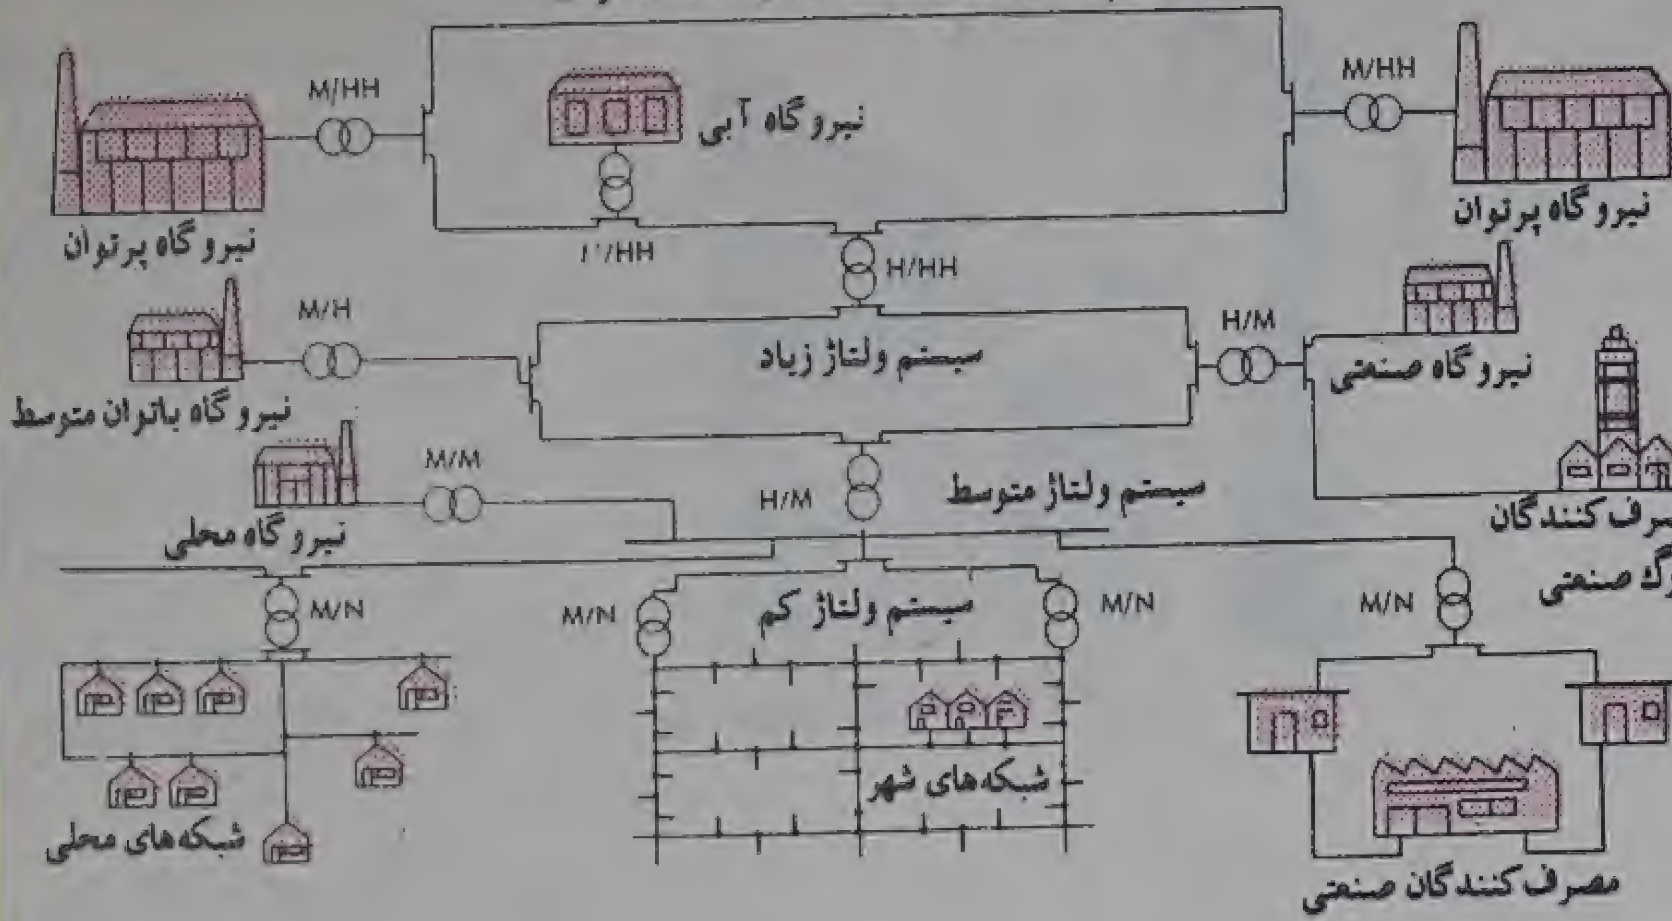 M/HH
M/HH
نیروگاه آبی
نیروگاه پرتوان
نیروگاه پرتوان
/HH
H/HH
M/H
H/M
سیستم ولتاژ زیاد
نیروگاه صنعتی
نیروگاه باتوان متوسط
M/M
H/M
سیستم ولتاژ متوسط
نیروگاه محلی
صرف کنندگان
صنعتی
M/N
M/N
سیستم ولتاژ کم
M/N
M/N
شبکه‌های شهر
شبکه‌های محلی
مصرف کنندگان صنعتی